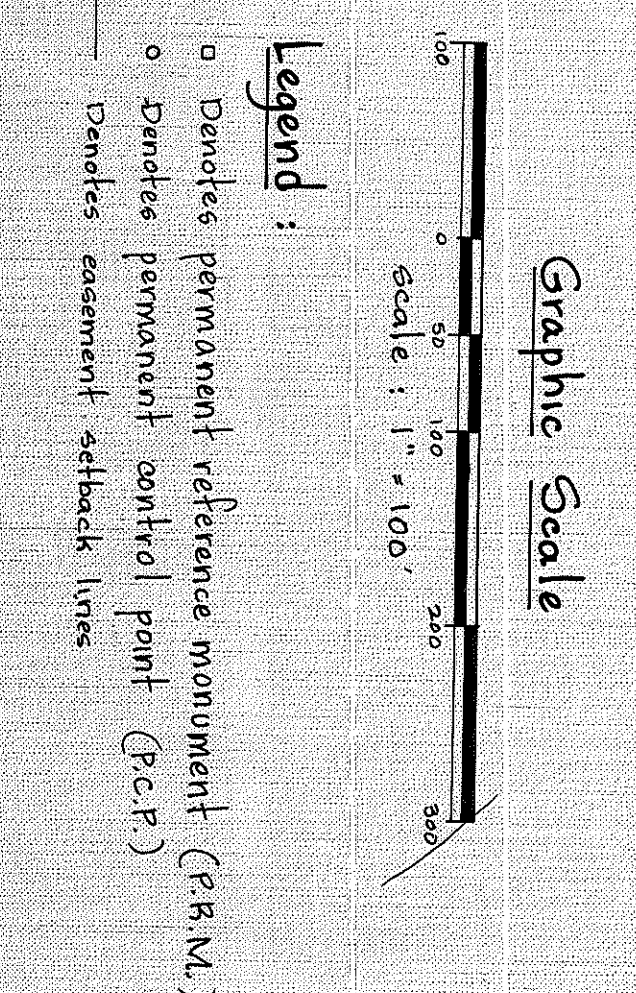 Graphic Scale
100 0 50 100 200 300
Scale : 1" = 100'
Legend :
□ Denotes permanent reference monument (P.R.M.)
○ Denotes permanent control point (P.C.P.)
Denotes easement setback lines